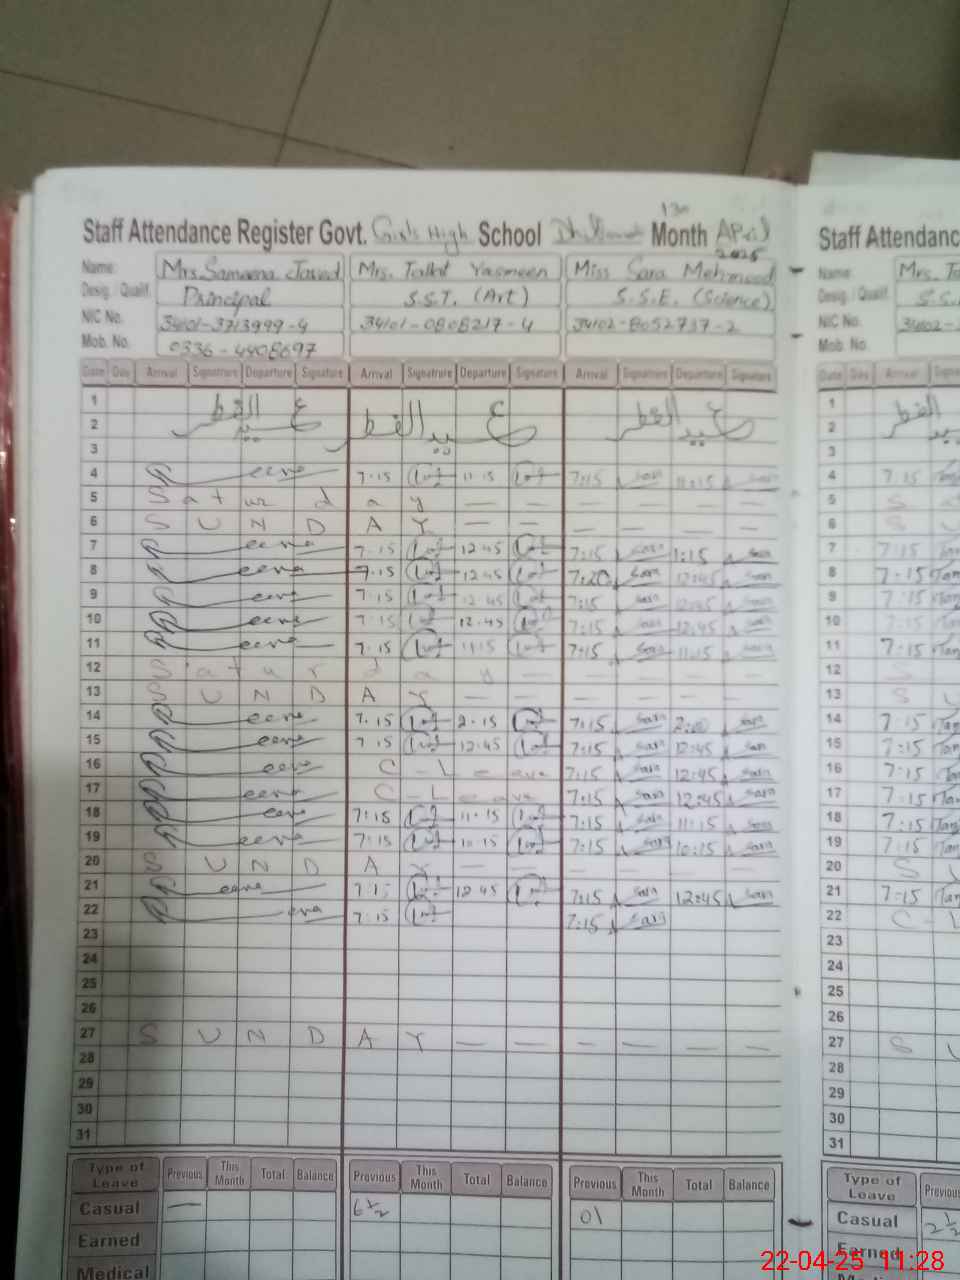 130
Staff Attendance Register Govt. Girls High School Month April
2025
Name: Mrs. Samaena Javed Mrs. Talht Yasmeen Miss Sara Mehmood
Desig./Qualif. Principal S.S.T. (Art) S.S.E. (Science)
NIC No. 34101-3713999-4 34101-0808217-4 34102-8052737-2
Mob. No. 0336-4408697
Date Day Arrival Signature Departure Signature Arrival Signature Departure Signature Arrival Signature Departure Signature
1 عید الفطر عید الفطر عید الفطر
2
3
4 7.15 11.15 7:15 Sara 11:15 Sara
5 Saturday — — — — — —
6 SUNDAY — — — — — —
7 7.15 12.45 7:15 Sara 1:15 Sara
8 7.15 12.45 7:20 Sara 12:45 Sara
9 7.15 12.45 7:15 Sara 12:45 Sara
10 7.15 12.45 7:15 Sara 12:45 Sara
11 7.15 11.15 7:15 Sara 11:15 Sara
12 Saturday — — — — —
13 SUNDAY — — — — — —
14 7.15 2.15 7:15 Sara Sara
15 7.15 12.45 7:15 Sara 12:45 Sara
16 C-Leave 7:15 Sara 12:45 Sara
17 C-Leave 7:15 Sara 12:45 Sara
18 7:15 11.15 7:15 Sara 11:15 Sara
19 7:15 10.15 7:15 Sara 10:15 Sara
20 SUNDAY — — — — —
21 12.45 7:15 Sara 12:45 Sara
22 7:15 7:15 Sara
23
24
25
26
27 SUNDAY — — — — — —
28
29
30
31
Type of Leave Previous This Month Total Balance Previous This Month Total Balance Previous This Month Total Balance
Casual — 6 1/2 01
Earned
Medical
Staff Attendanc
Name: Mrs.
Desig./Qualif. S.S.
NIC No.
Mob. No.
Date Day Arrival
1
2
3
4 7.15
5 S
6 S
7 7:15
8 7:15
9 7:15
10 7:15
11 7:15
12 S
13 S
14 7:15
15 7:15
16 7:15
17 7:15
18 7:15
19 7:15
20 S
21 7:15
22 C-L
23
24
25
26
27 S
28
29
30
31
Type of Leave Previous
Casual 2 1/2
Earned
22-04-25 11:28